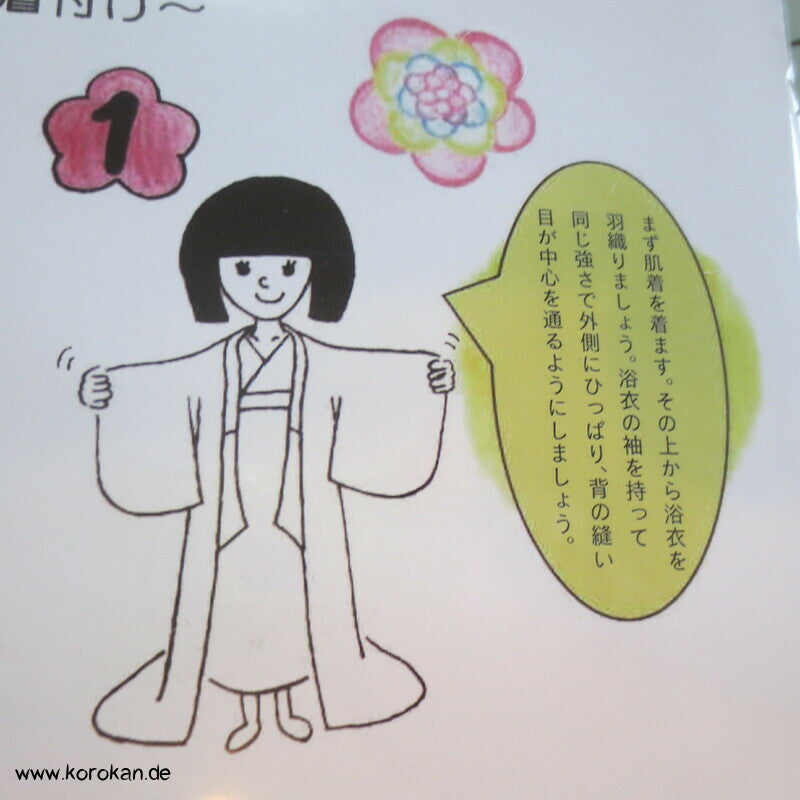 着付け～
1
まず肌着を着ます。その上から浴衣を
羽織りましょう。浴衣の袖を持って
同じ強さで外側にひっぱり、背の縫い
目が中心を通るようにしましょう。
www.korokan.de